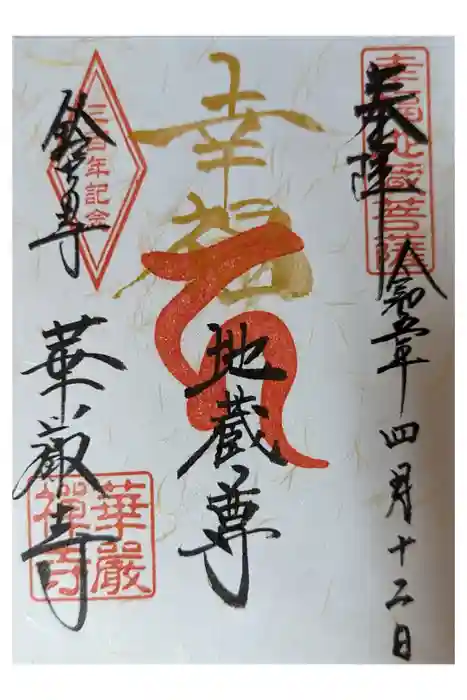 幸福地蔵菩薩
奉拝
令和五年四月十二日
幸福
地蔵尊
三百年記念
鈴虫の寺
華厳寺
華嚴
禅寺